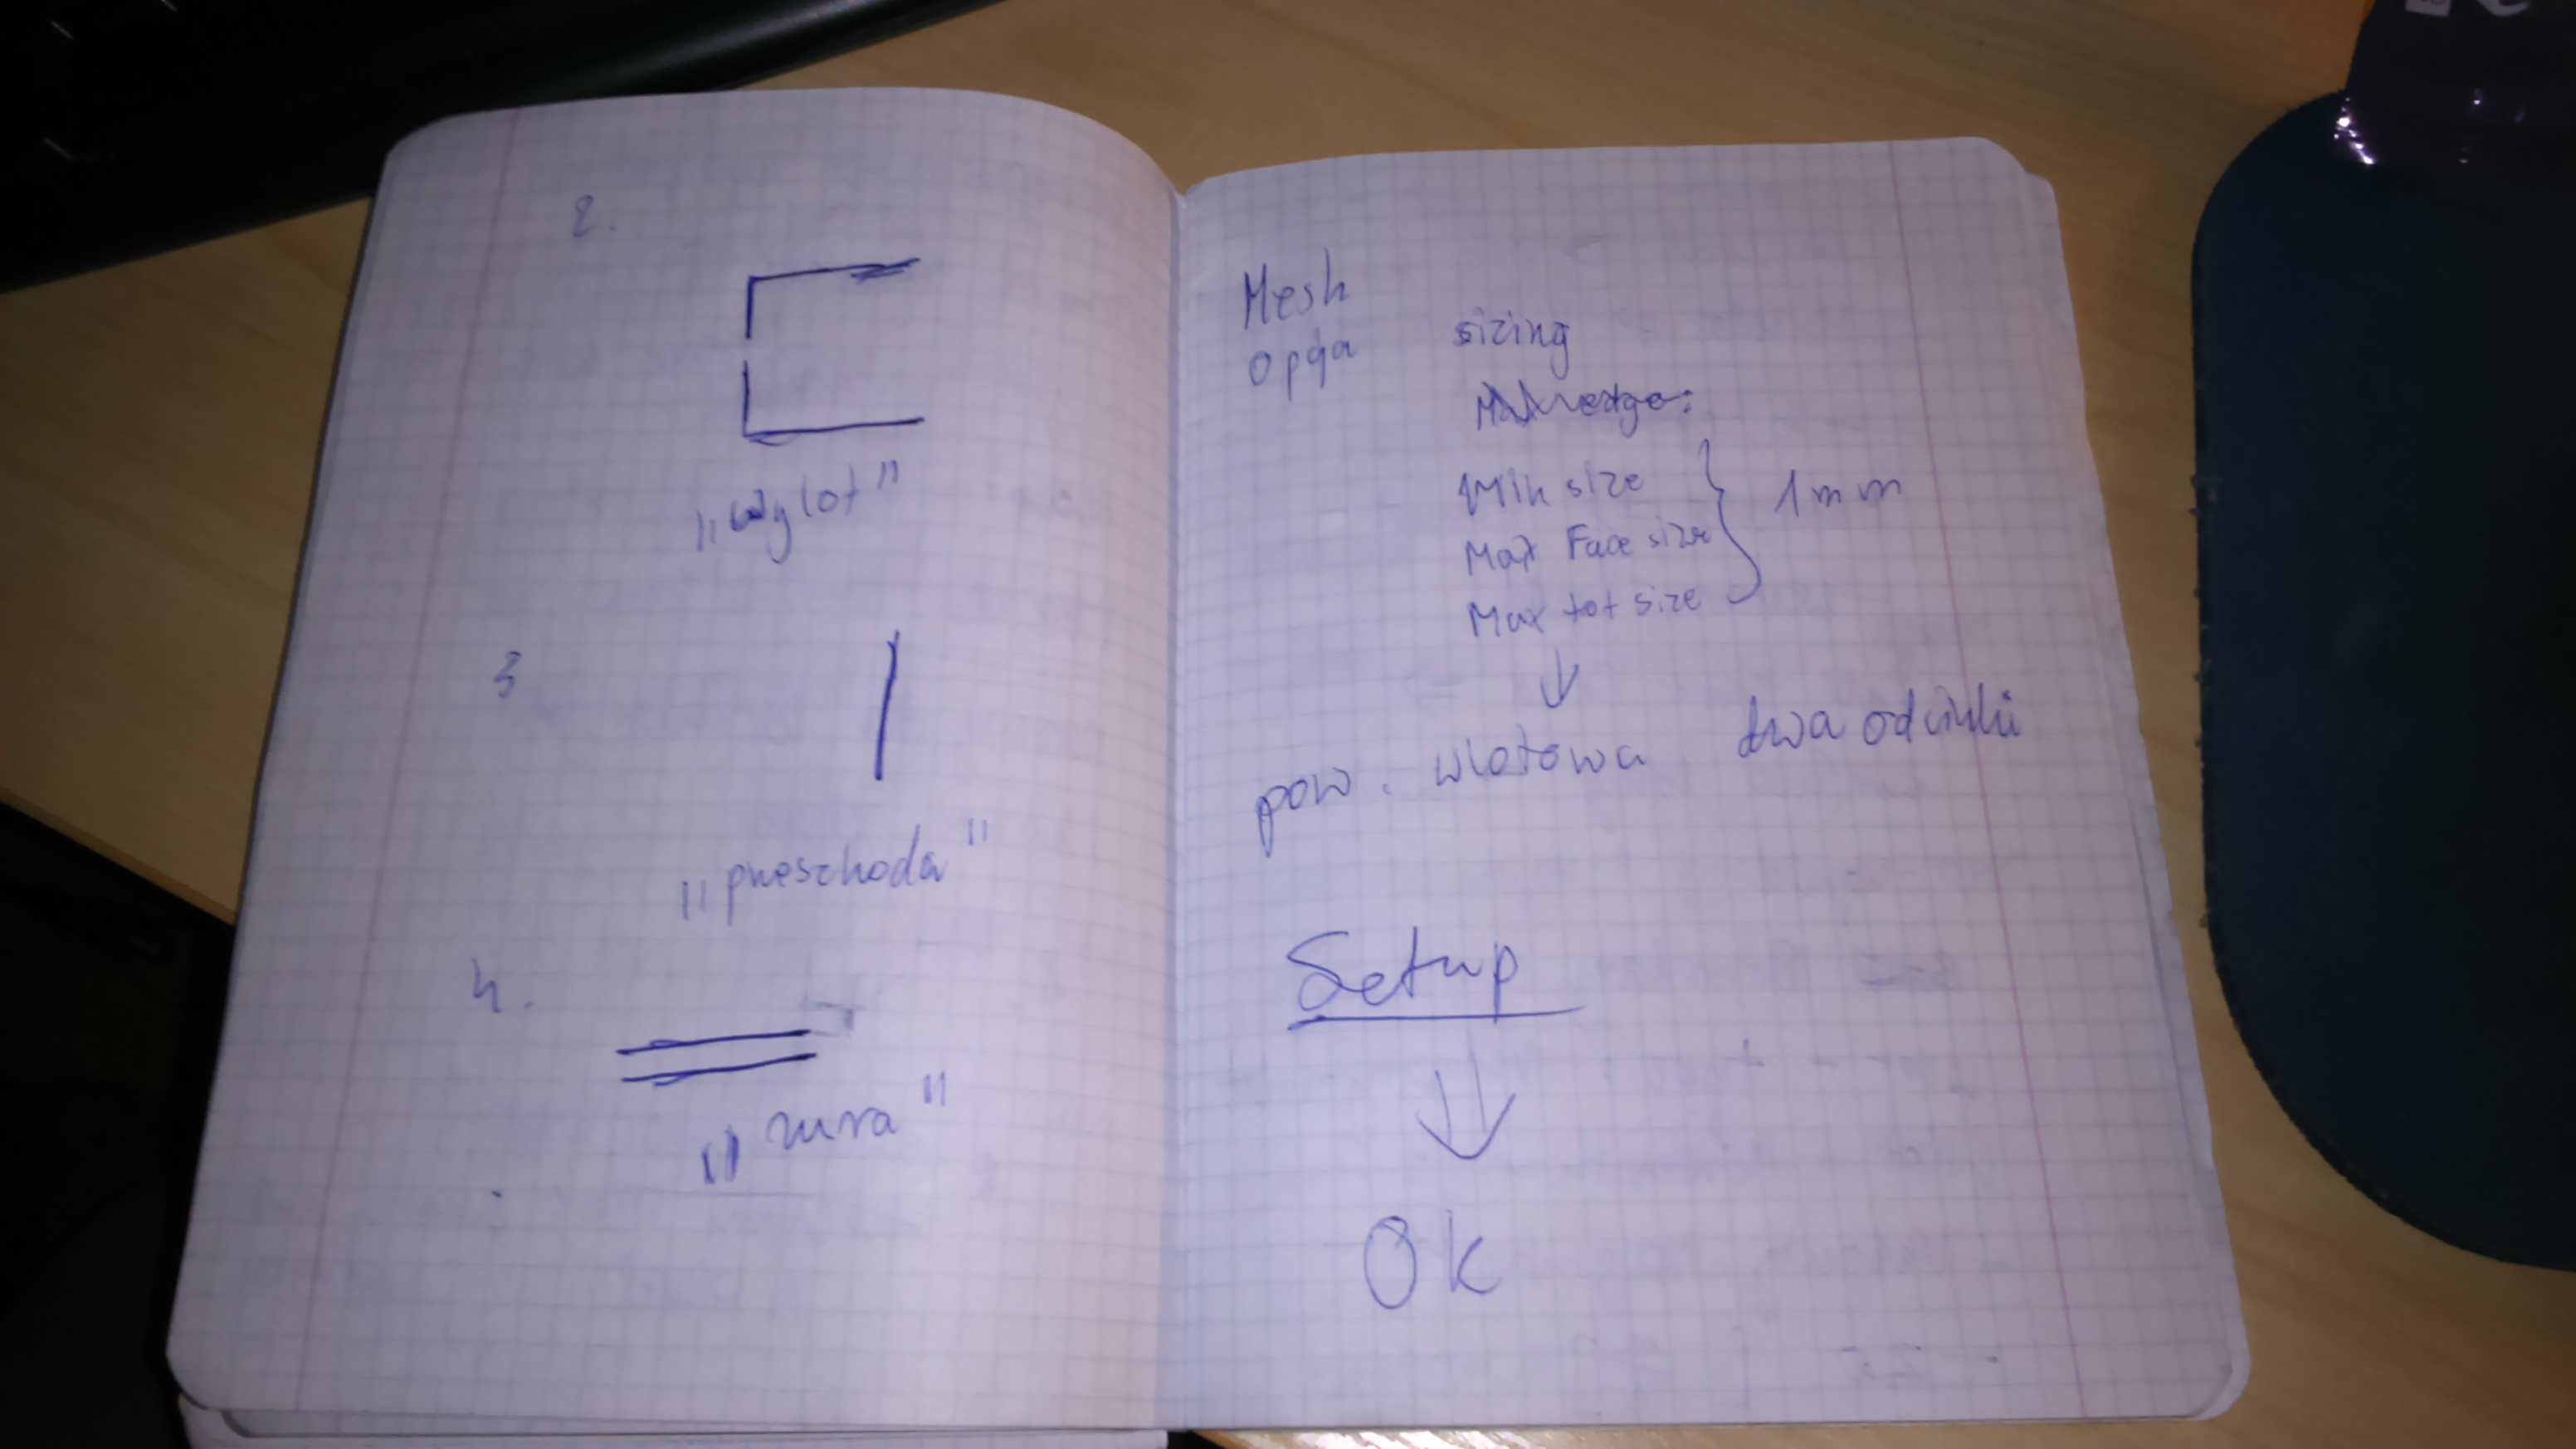 2.
„wylot"
3
„pneszkoda"
4.
„rura"
Mesh
opcja sizing
Min size
Max Face size
Max tot size
1mm
↓
pow. wlotowa dwa odcinki
Setup
⇓
Ok